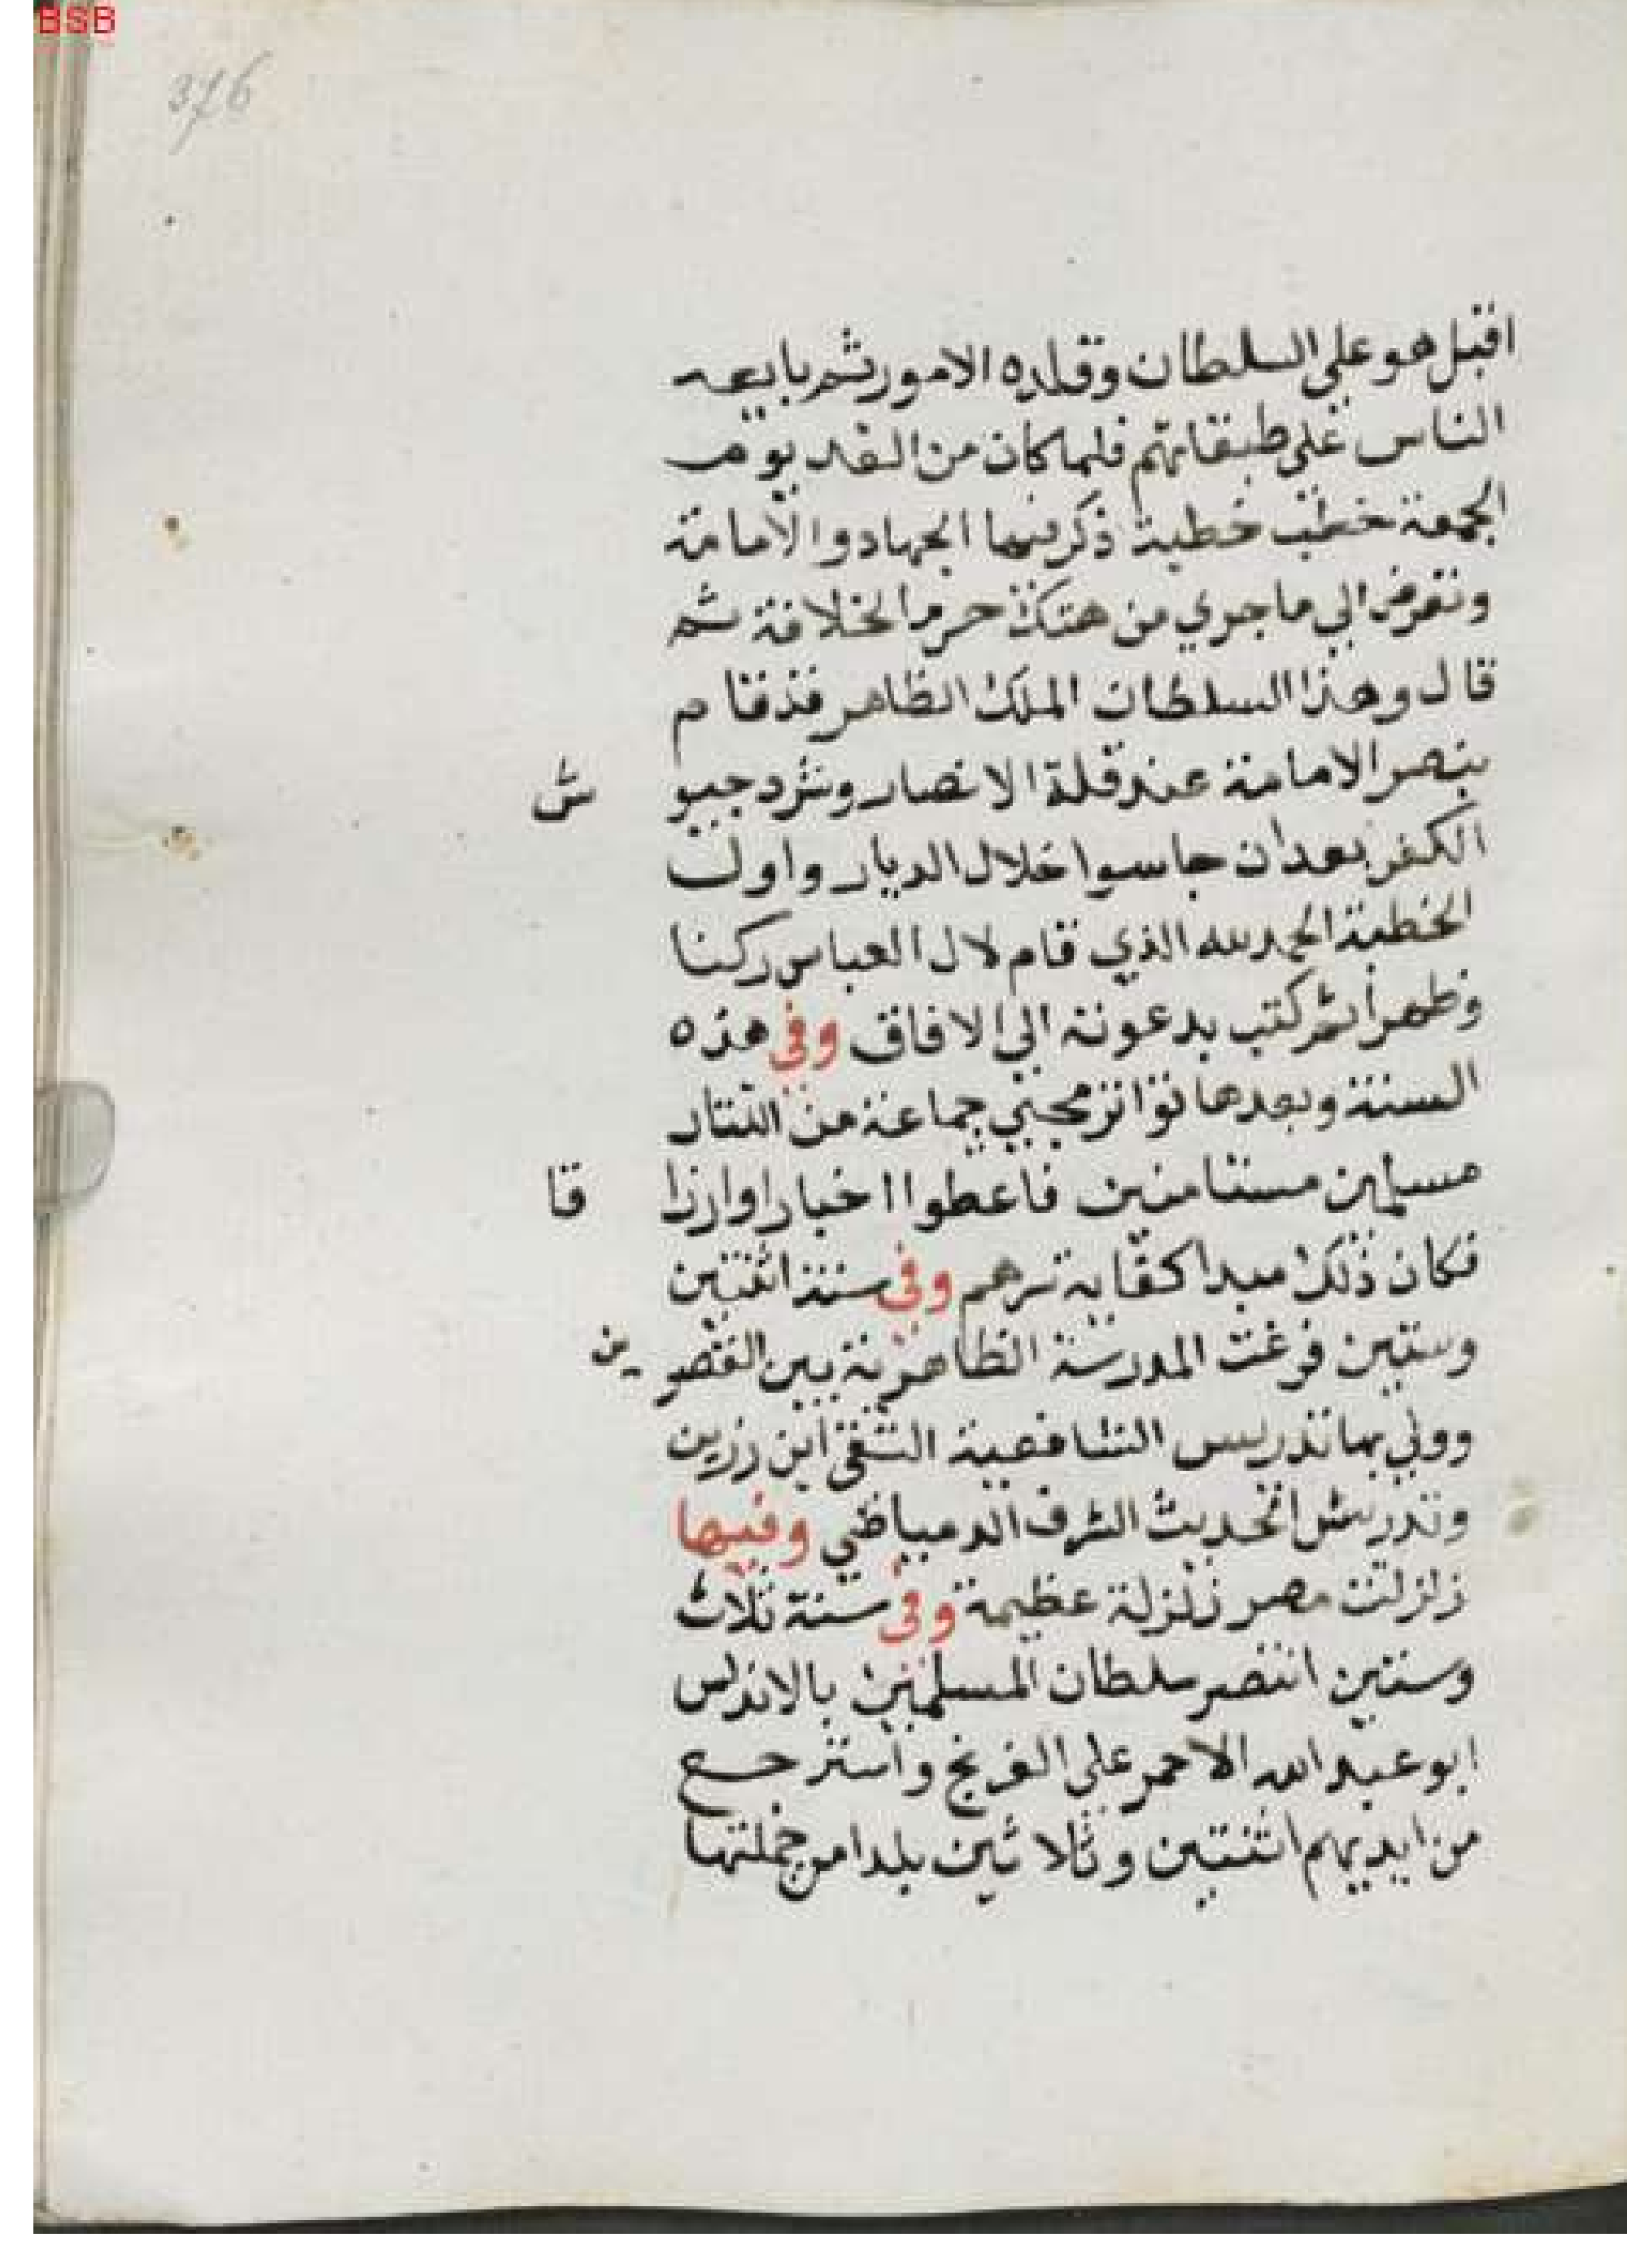 BSB
376
اقبل هو على السلطان وقلده الامور ثم بايعه
الناس على طبقاتهم فلما كان من الغد يوم
الجمعة خطب خطبة ذكر فيها الجهاد والامامة
وتعرض الي ما جري من هتك حرم الخلافة ثم
قال وهذا السلطان الملك الظاهر قد قام
بنصر الامامة عند قلة الانصار وشرد جيو ش
الكفر بعد ان جاسوا خلال الديار واول
الخطبة الحمد لله الذي قام لال العباس ركنا
وظهرا ثم كتب بدعوته الي الافاق وفي هذه
السنة وبعدها تواتر مجيي جماعة من التتار
مسلمين مستامنين فاعطوا اخبارا وارزا قا
فكان ذلك مبدا كفاية شرهم وفي سنة اثنتين
وستين فرغت المدرسة الظاهرية بين القصر ين
وولي بها تدريس الشافعية التقي ابن رزين
وتدريس الحديث الشرف الدمياطي وفيها
زلزلت مصر زلزلة عظيمة وفي سنة ثلاث
وستين انتصر سلطان المسلمين بالاندلس
ابو عبد الله الاحمر على الفرنج واسترجع
من ايديهم اثنتين وثلاثين بلدا من جملتها